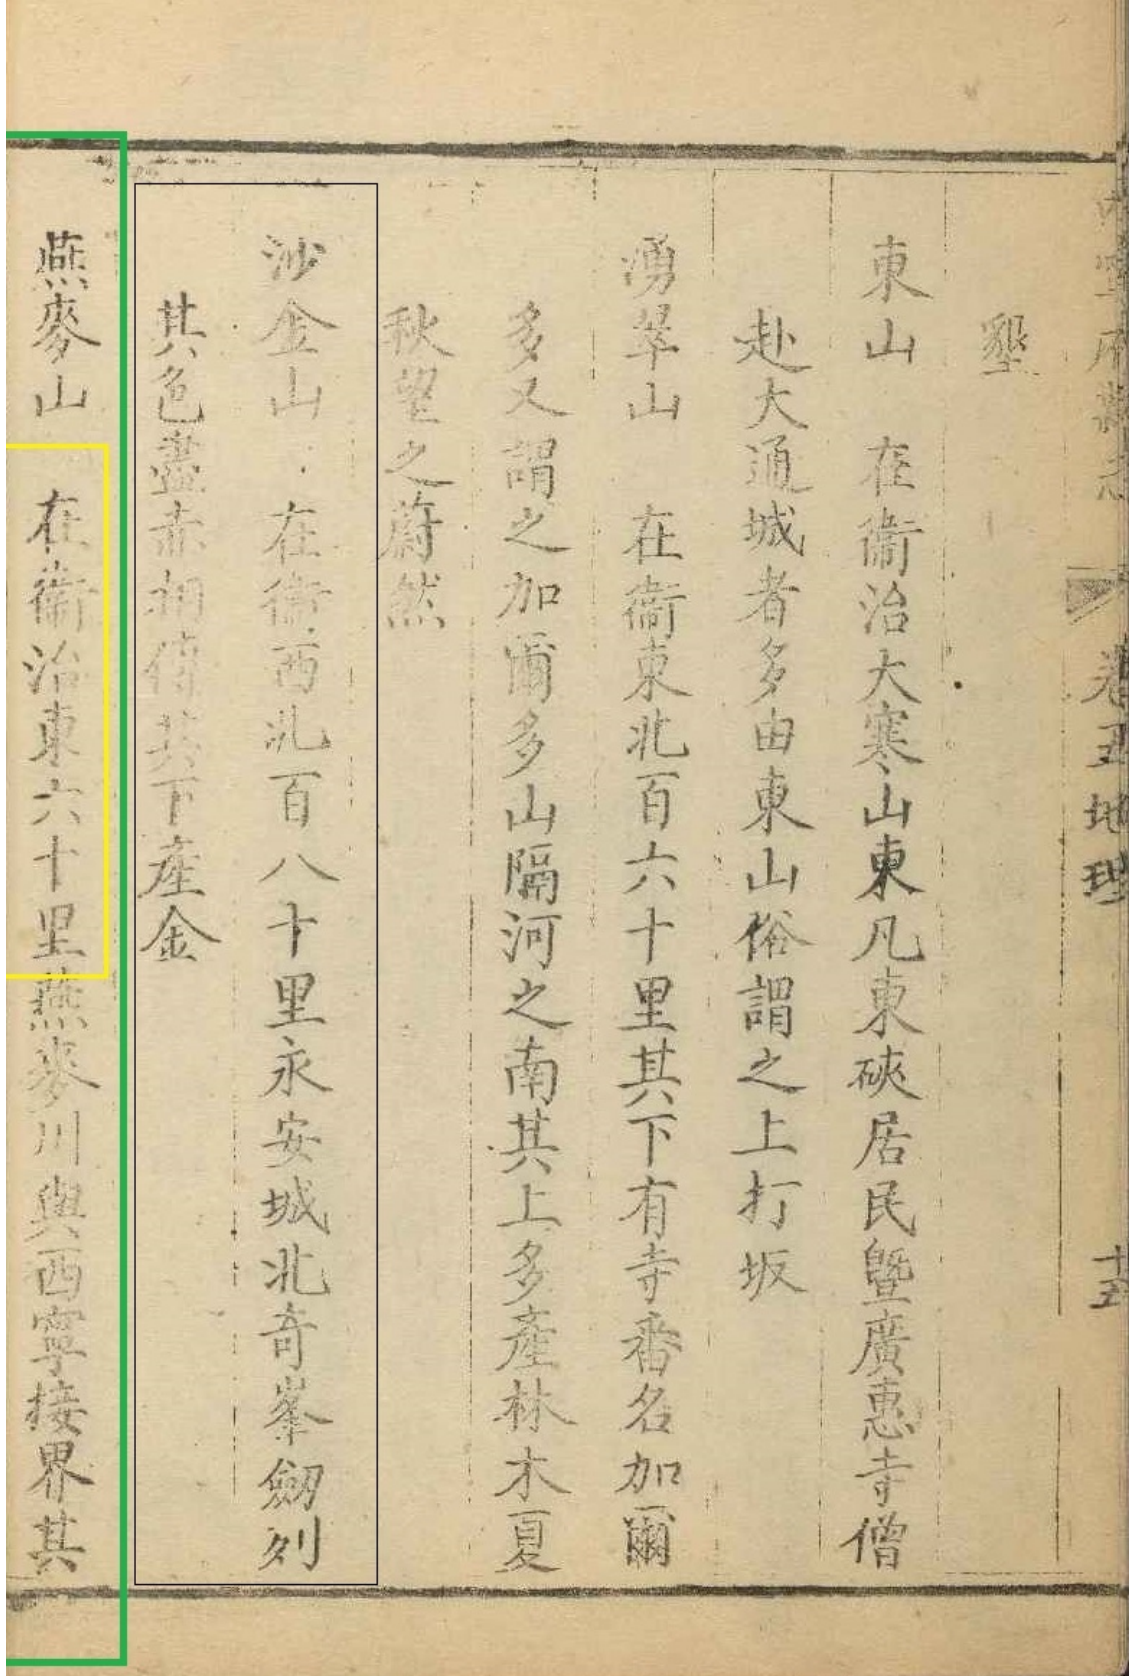 卷五地理
十五
墾
東山 在衞治大寒山東凡東硤居民曁廣惠寺僧
赴大通城者多由東山俗謂之上打坂
湧翠山 在衞東北百六十里其下有寺番名加爾
多又謂之加爾多山隔河之南其上多產林木夏
秋望之蔚然
沙金山 在衞西北百八十里永安城北奇峯劒列
其色盡赤相傳其下產金
燕麥山 在衞治東六十里燕麥川與西寧接界其